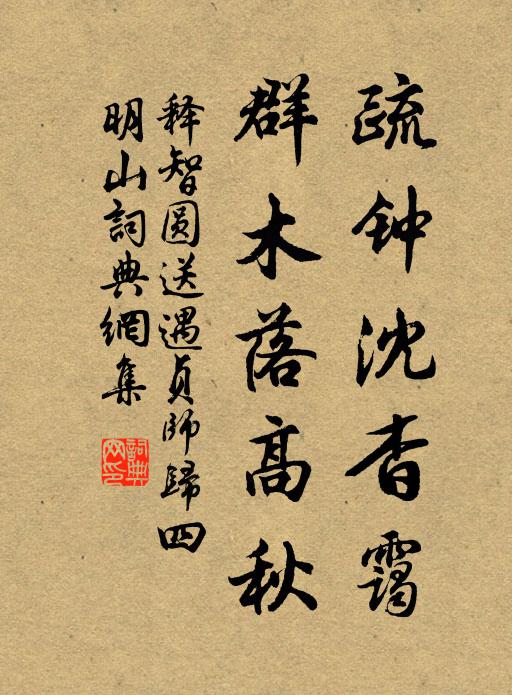 疏钟沈杳霭
群木落高秋
释智圆送遇贞师歸四
明山詞典網集
詞典网印